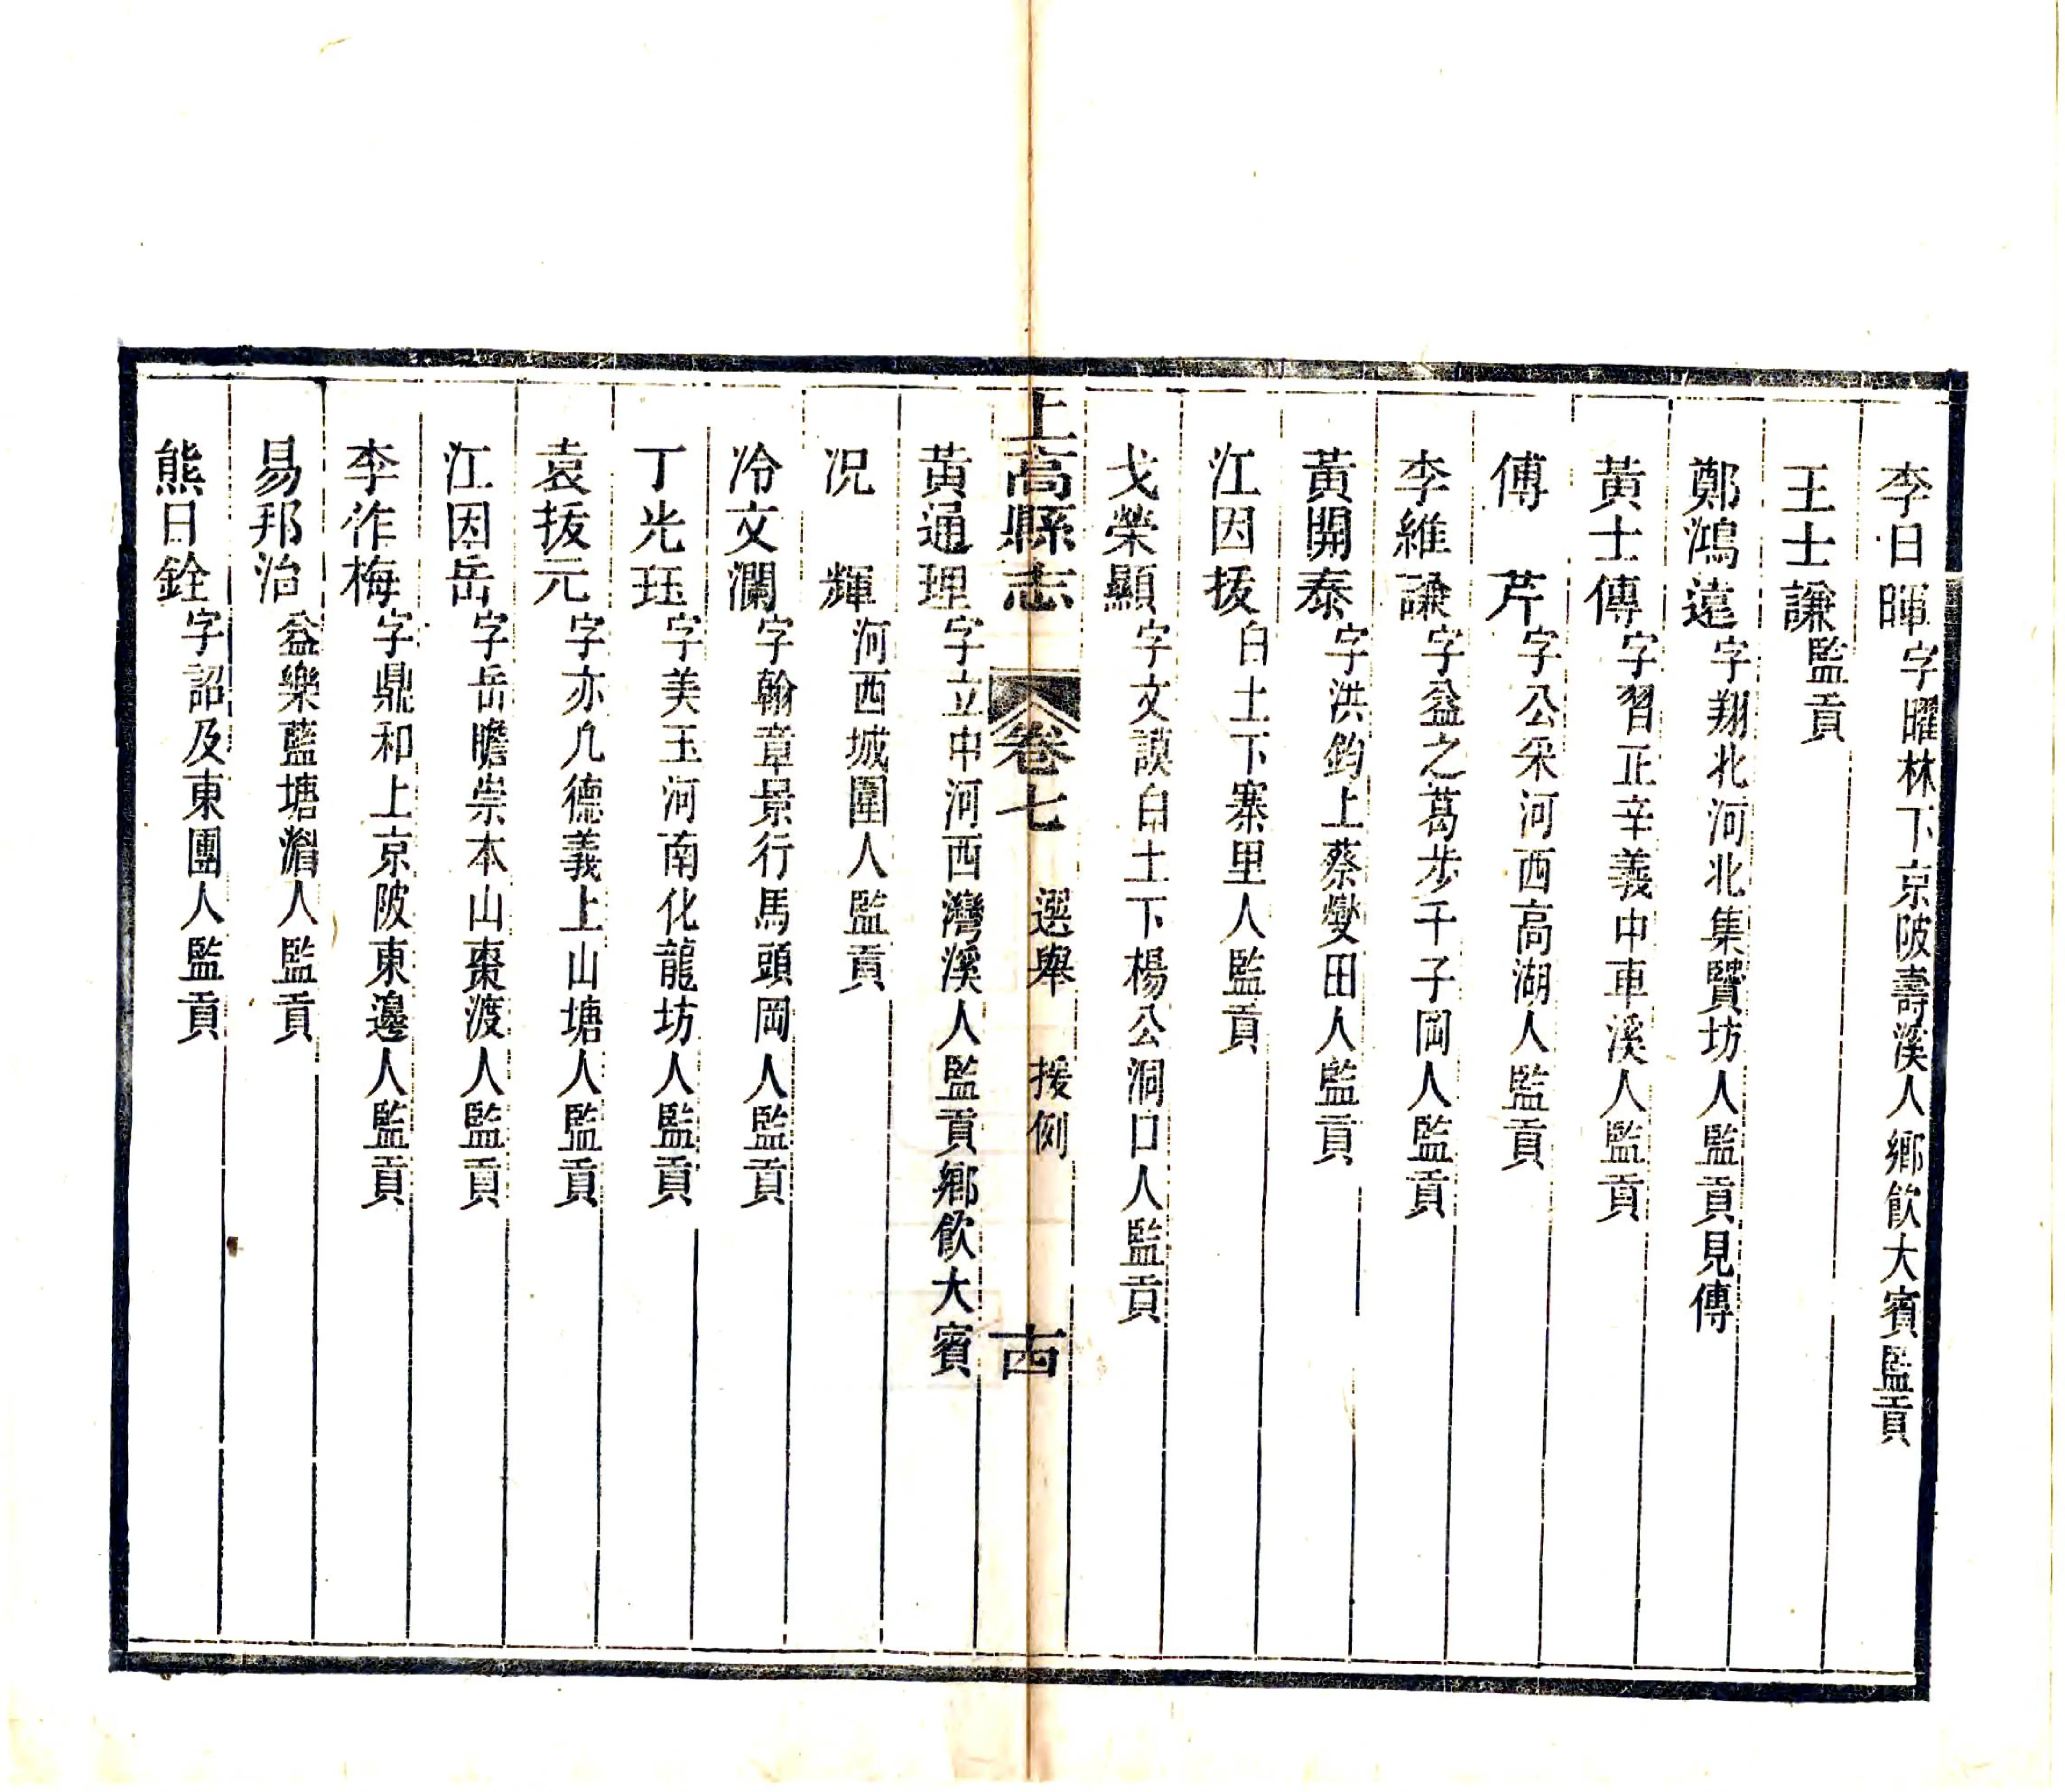 李日暉字曜林下京陂壽溪人鄉飲大賓監貢
王士謙監貢
鄭鴻遠字翔北河北集賢坊人監貢見傳
黃士傳字習正辛義中車溪人監貢
傅芹字公采河西高湖人監貢
李維謙字益之葛步千子岡人監貢
黃開泰字洪鈞上蔡燮田人監貢
江因拔白土下寨里人監貢
戈榮顯字文謨白土下楊公洞口人監貢
上高縣志 卷七 選舉 援例 十四
黃通理字立中河西灣溪人監貢鄉飲大賓
况輝河西城圍人監貢
冷文瀾字翰章景行馬頭岡人監貢
丁光珏字美玉河南化龍坊人監貢
袁拔元字亦凡德義上山塘人監貢
江因岳字岳瞻崇本山棗渡人監貢
李作梅字鼎和上京陂東邊人監貢
易邦治益樂藍塘㵎人監貢
熊日銓字詔及東團人監貢